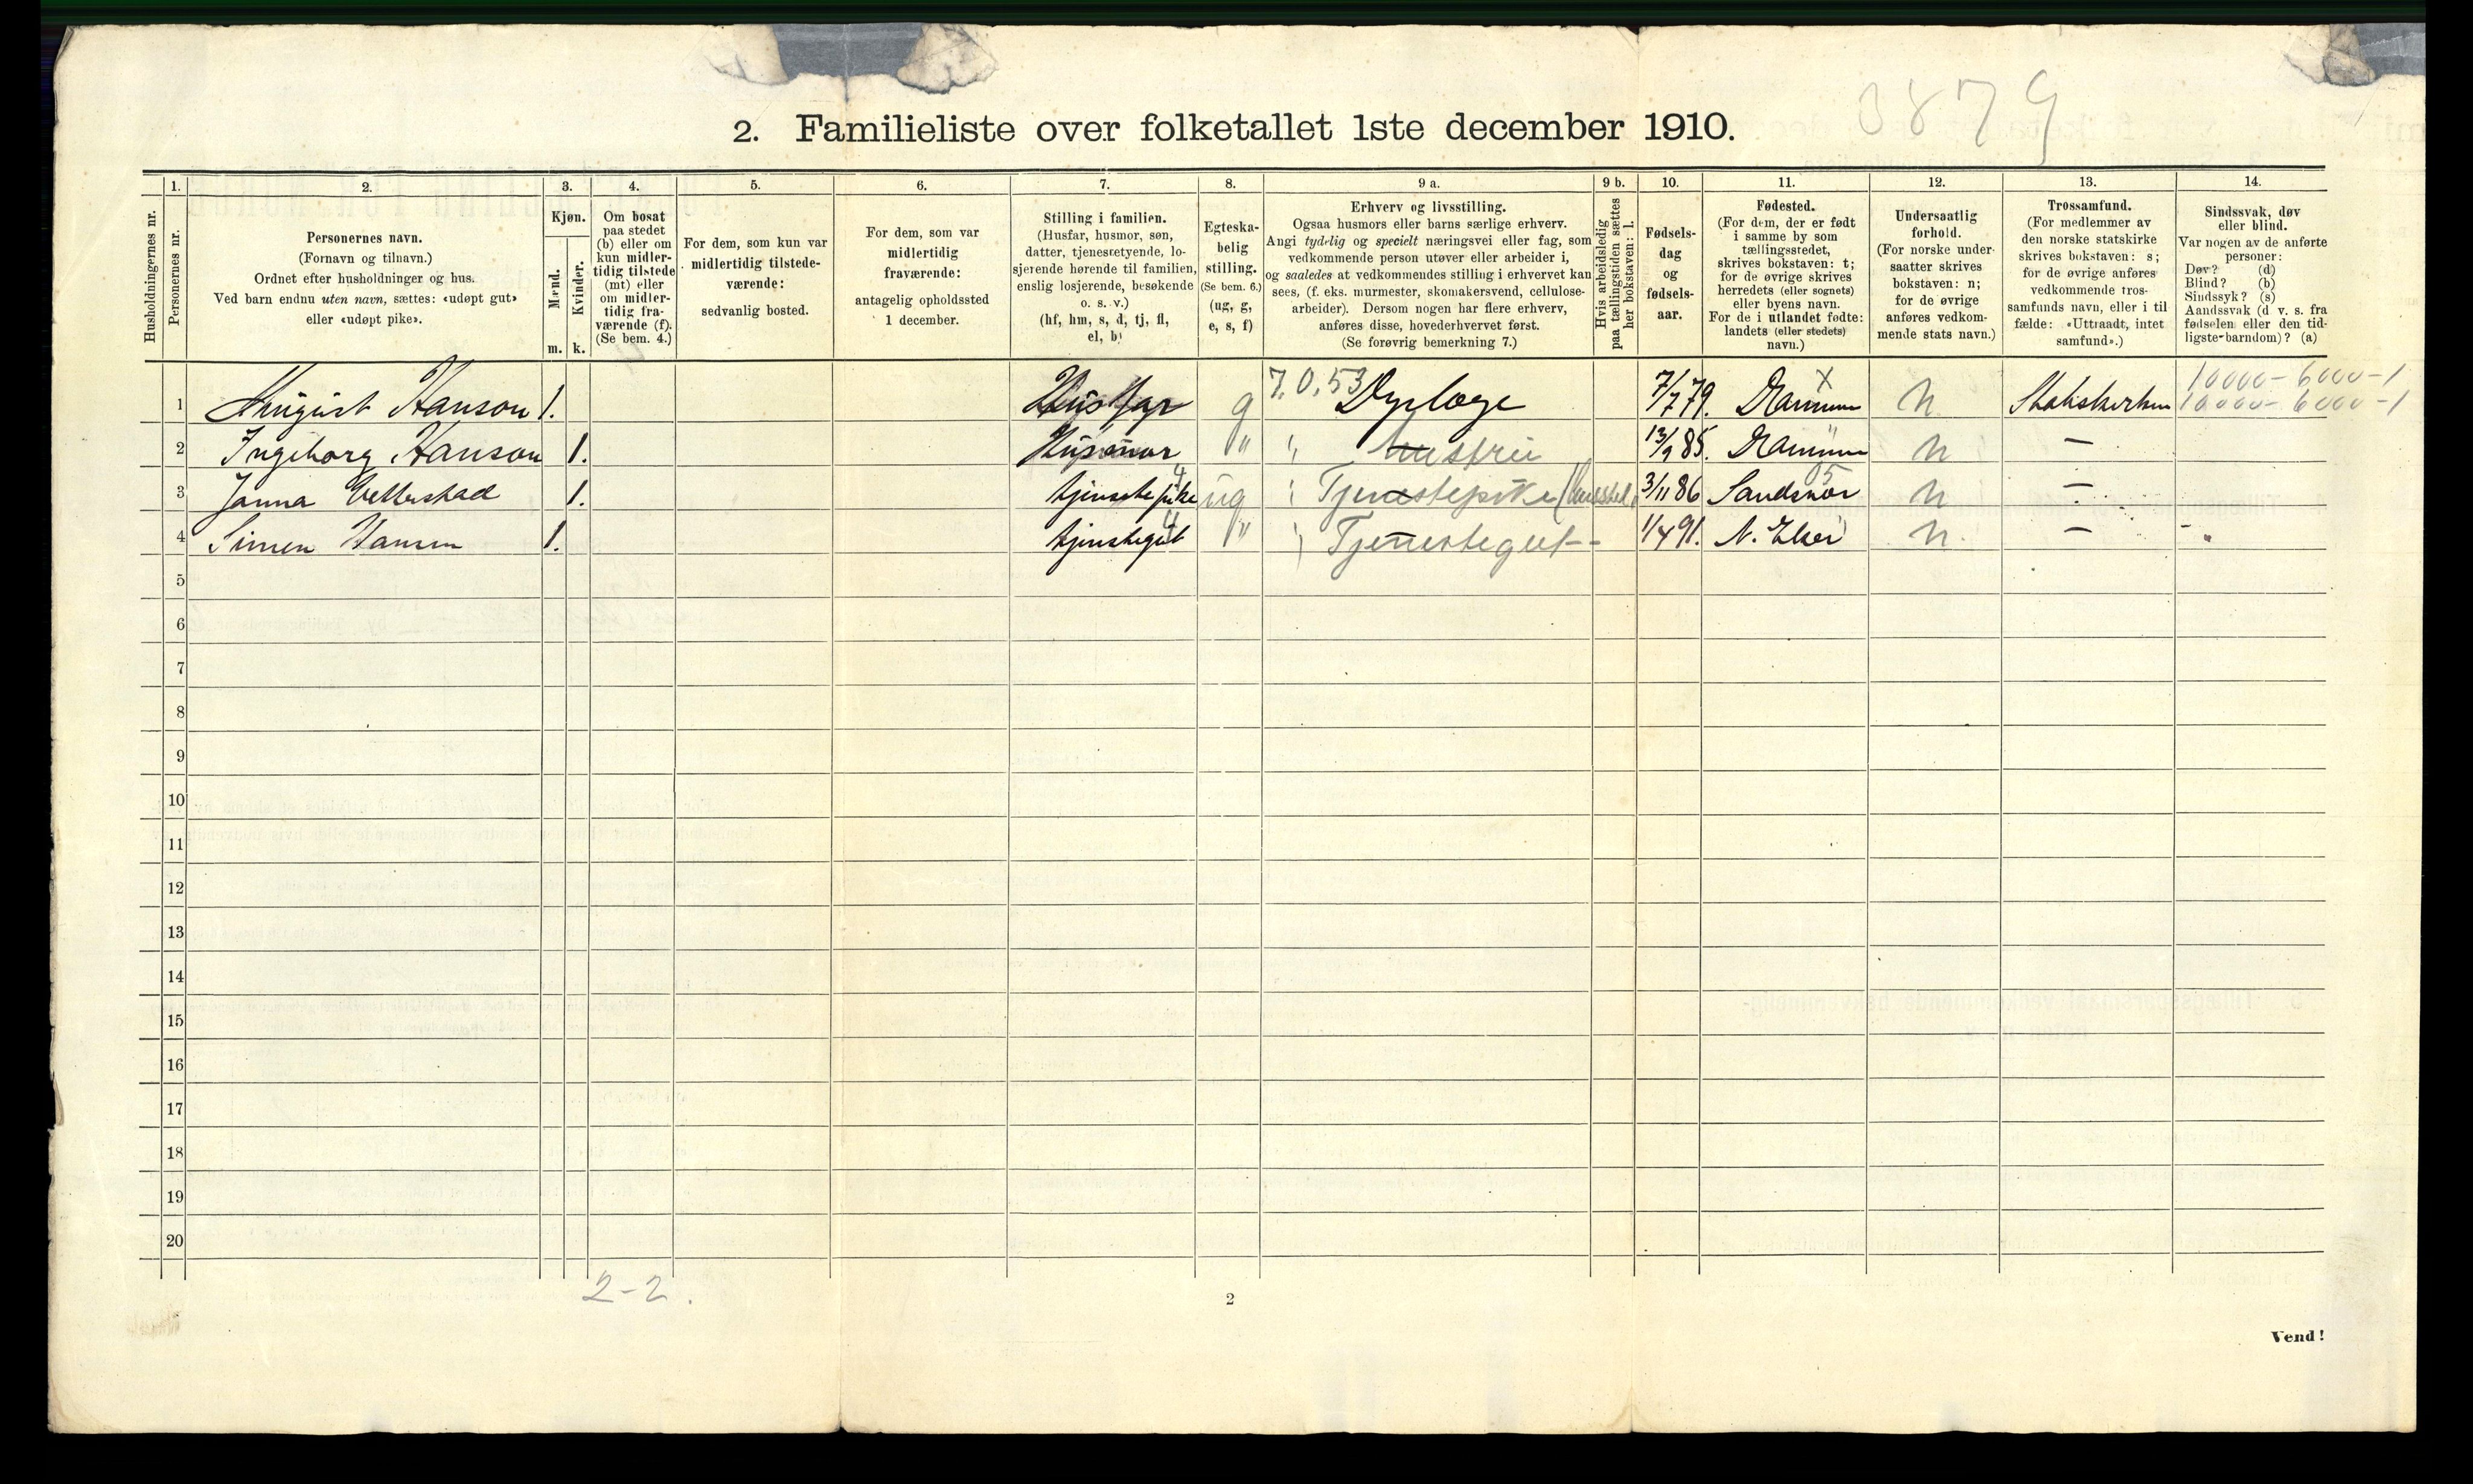 3879
2. Familieliste over folketallet 1ste december 1910.
Husholdningernes nr.
1.
Personernes nr.
2.
Personernes navn.
(Fornavn og tilnavn.)
Ordnet efter husholdninger og hus.
Ved barn endnu uten navn, sættes: «udøpt gut»
eller «udøpt pike».
3.
Kjøn.
Mænd.
Kvinder.
m. k.
4.
Om bosat
paa stedet
(b) eller om
kun midler-
tidig tilstede
(mt) eller
om midler-
tidig fra-
værende (f).
(Se bem. 4.)
5.
For dem, som kun var
midlertidig tilstede-
værende:
sedvanlig bosted.
6.
For dem, som var
midlertidig
fraværende:
antagelig opholdssted
1 december.
7.
Stilling i familien.
(Husfar, husmor, søn,
datter, tjenesretyende, lo-
sjerende hørende til familien,
enslig losjerende, besøkende
o. s. v.)
(hf, hm, s, d, tj, fl,
el, b)
8.
Egteska-
belig
stilling.
(Se bem. 6.)
(ug, g,
e, s, f)
9 a.
Erhverv og livsstilling.
Ogsaa husmors eller barns særlige erhverv.
Angi tydelig og specielt næringsvei eller fag, som
vedkommende person utøver eller arbeider i,
og saaledes at vedkommendes stilling i erhvervet kan
sees, (f. eks. murmester, skomakersvend, cellulose-
arbeider). Dersom nogen har flere erhverv,
anføres disse, hovederhvervet først.
(Se forøvrig bemerkning 7.)
9 b.
Hvis arbeidsledig
paa tællingstiden sættes
her bokstaven: l.
10.
Fødsels-
dag
og
fødsels-
aar.
11.
Fødested.
(For dem, der er født
i samme by som
tællingsstedet,
skrives bokstaven: t;
for de øvrige skrives
herredets (eller sognets)
eller byens navn.
For de i utlandet fødte:
landets (eller stedets)
navn.)
12.
Undersaatlig
forhold.
(For norske under-
saatter skrives
bokstaven: n;
for de øvrige
anføres vedkom-
mende stats navn.)
13.
Trossamfund.
(For medlemmer av
den norske statskirke
skrives bokstaven: s;
for de øvrige anføres
vedkommende tros-
samfunds navn, eller i til
fælde: «Uttraadt, intet
samfund».)
14.
Sindssvak, døv
eller blind.
Var nogen av de anførte
personer:
Døv? (d)
Blind? (b)
Sindssyk? (s)
Aandssvak (d v. s. fra
fødselen eller den tid-
ligste barndom)? (a)
1 August Hanson 1. Husfar g 7.0.53 Dyrlæge 7/7 79. Drammen X n Statskirken 10000-6000-1
10000-6000-1
2 Ingeborg Hanson 1. Husmor " " Hustru 13/9 85. Drammen " n —
3 Janna Vetterstad 1. tjenestepike 4 ug " Tjenestepike (husstel) 3/11 86 Sandsvær 05 n —
4 Simen Hansen 1. tjenstegut 4 " " Tjenestegut -- 1/4 91. N. Eker n. — -"
5
6
7
8
9
10
11
12
13
14
15
16
17
18
19
20
2-2.
2
Vend!